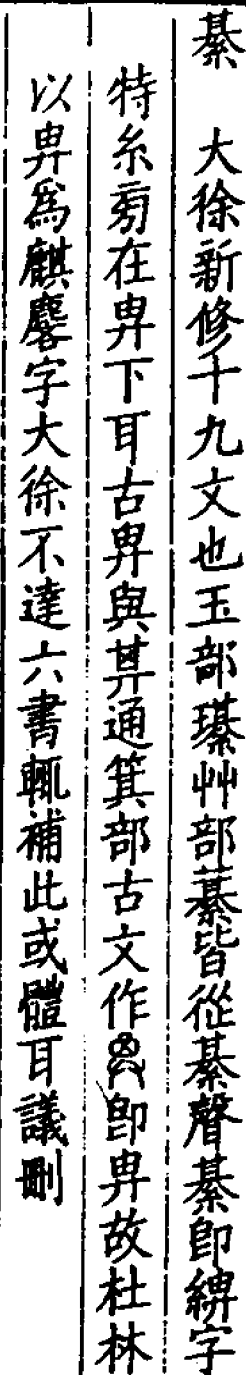 綦　大徐新修十九文也玉部瓂艸部藄皆從綦聲綦即綥字
特糸㫄在畁下耳古畁與其通箕部古文作𠔋即畁故杜林
以畁爲麒麐字大徐不達六書輒補此或體耳議刪